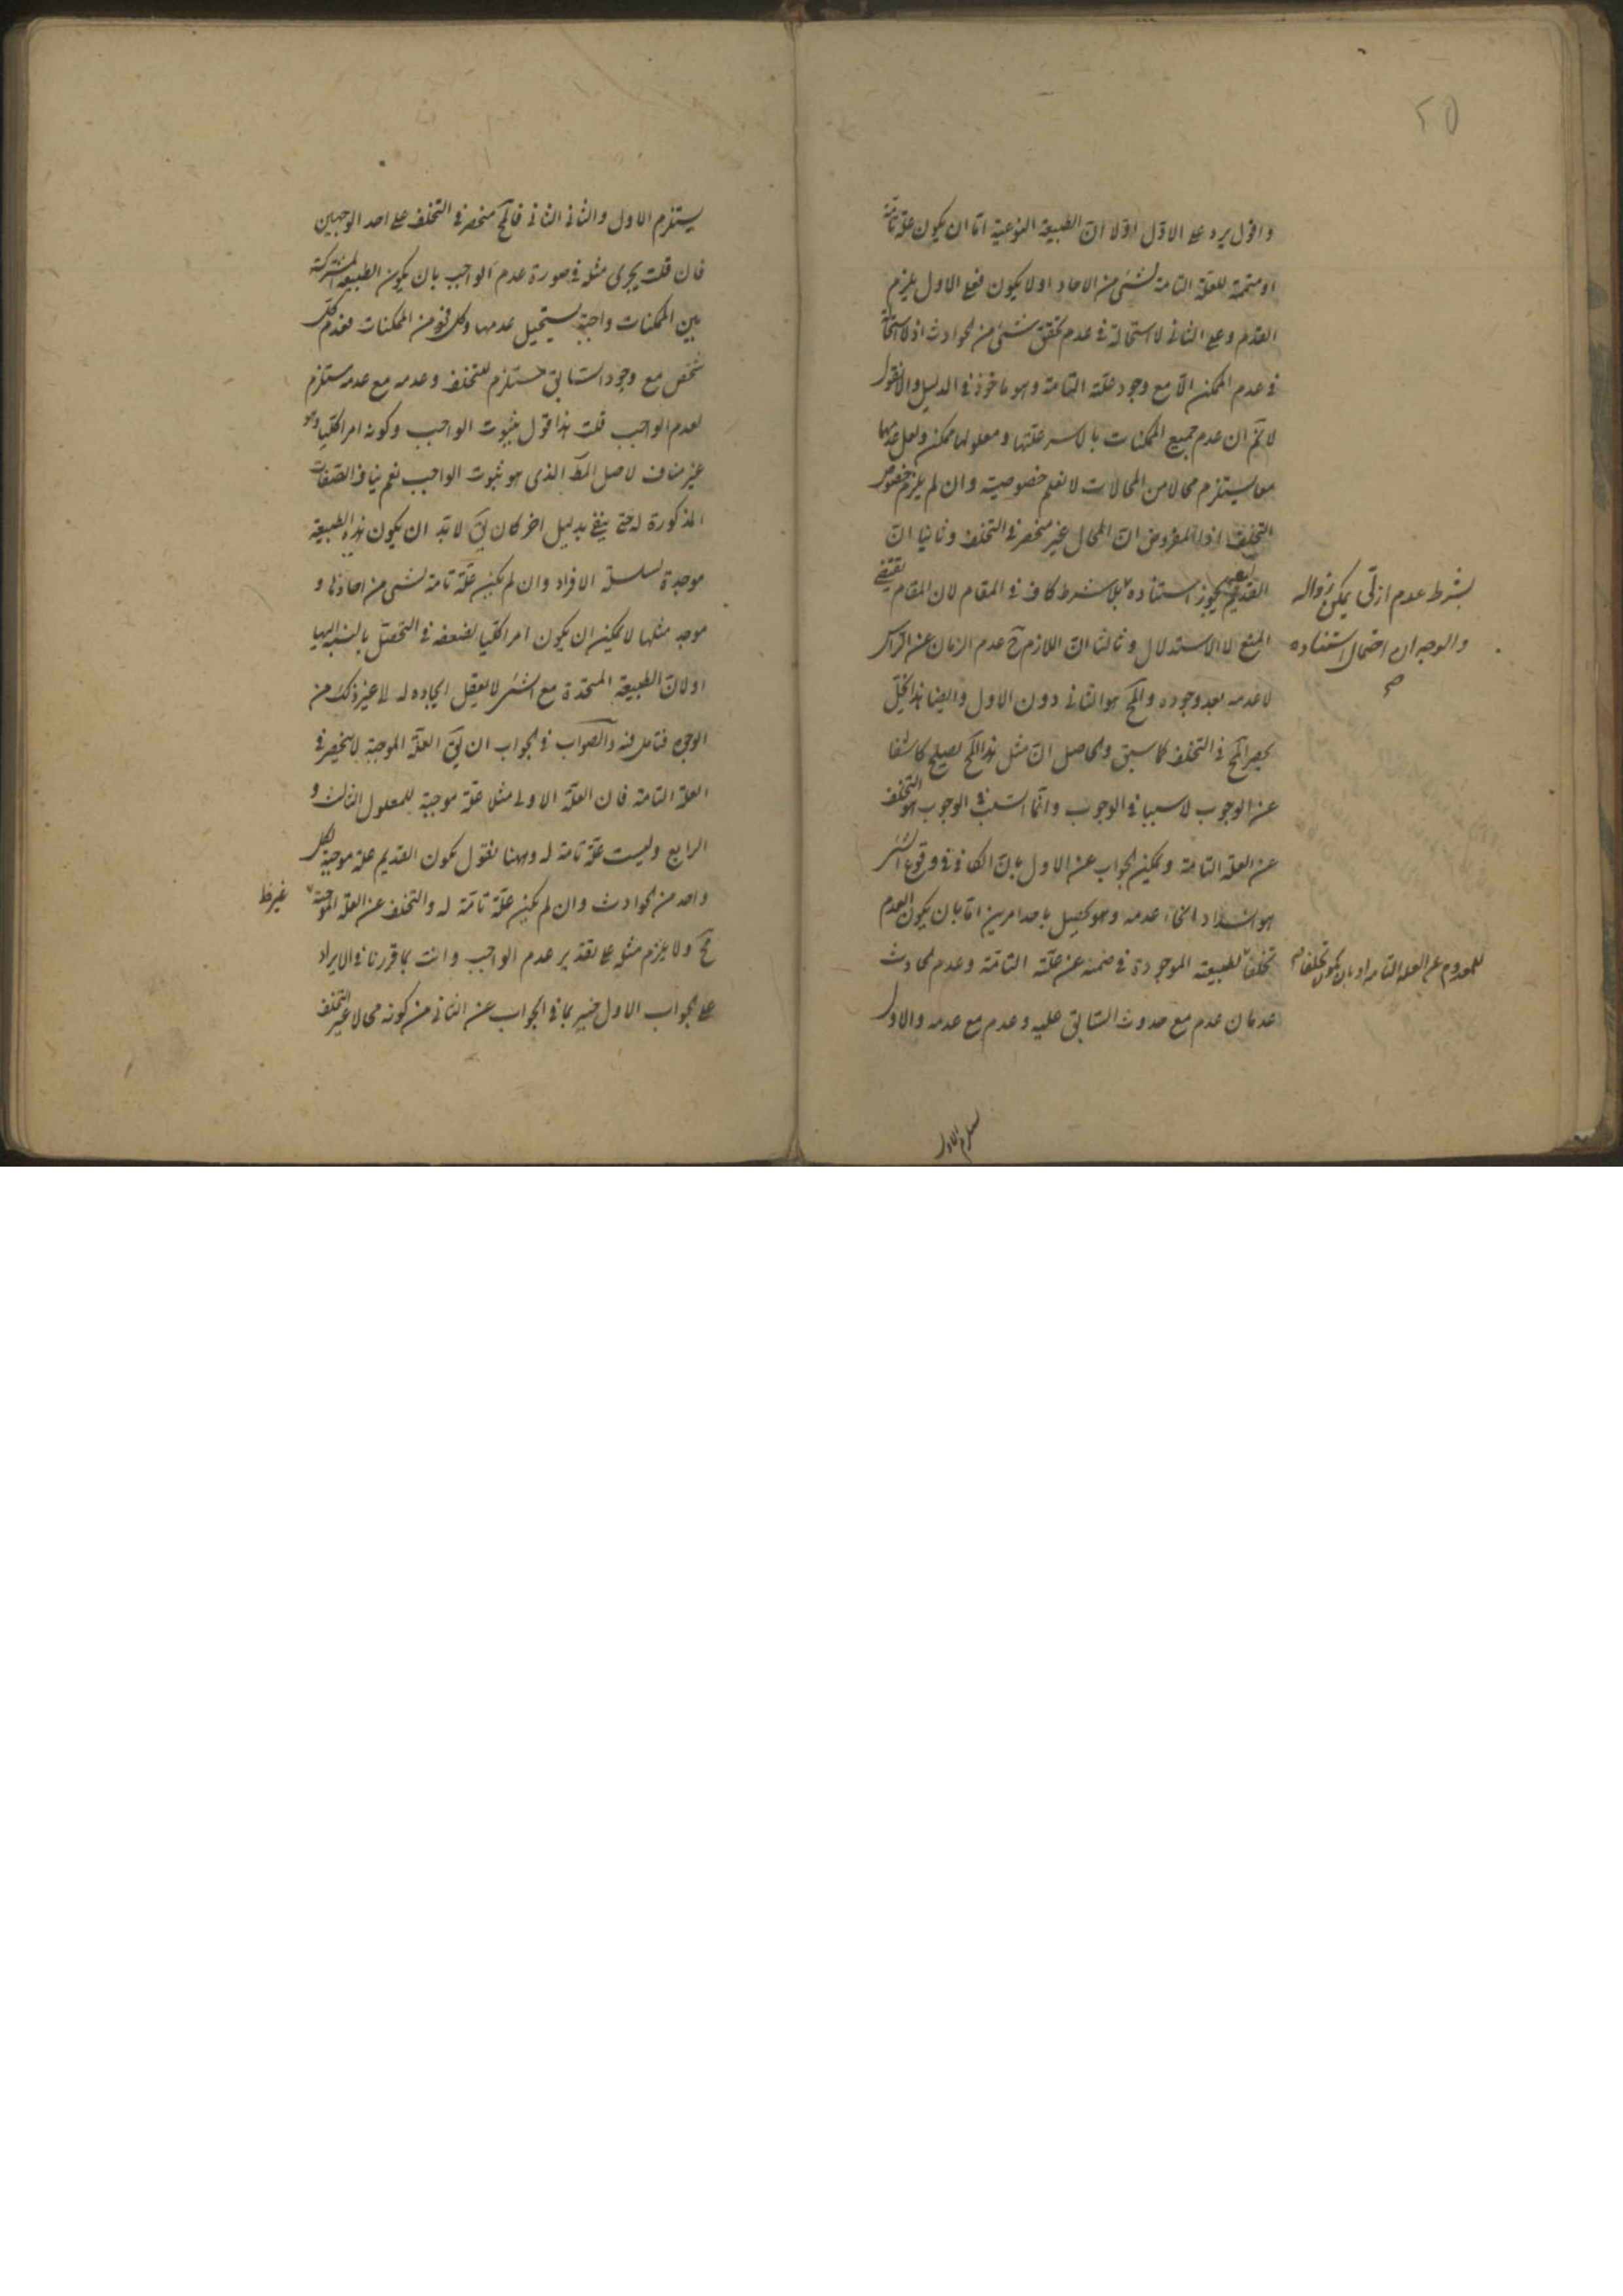 ٢٥
واقول يرد على الاوّل اوّلا انّ الطبيعة النوعية امّا ان يكون علّة تامّة
او متمّمة للعلّة التامة لشئ من الاحاد او لا يكون فعلى الاول يلزم
القدم وعلى الثانى لا استحالة فى عدم تحقق شئ من الحوادث اذ لا استحالة
فى عدم الممكن الّا مع وجود علّته التامة وهو ماخوذ فى الدليل والا نقول
لا نم ان عدم جميع الممكنات بالاسر علّتها ومعلولها ممكن ولعل عدمها
معا يستلزم محالا من المحالات لا نعلم خصوصيته وان لم يلزم خصوص
التخلف اذ المفروض انّ المحال غير منحصر فى التخلف وثانيا انّ
القديم يجوز استناده بلا شرط كاف فى المقام لان المقام يقتضى
بشرط عدم ازلى يمكن زواله
والوجه ان احتمال استناده
صح
المنع لا الاستدلال وثالثا انّ اللازم ح عدم الزمان عن الراس
لا عدمه بعد وجوده والمح هو الثانى دون الاول وايضا هذا يخلّ
بحصر المح فى التخلف كما سبق والحاصل انّ مثل هذا المح يصلح كاشفا
عن الوجوب لا سببا فى الوجوب وانّما السبب فى الوجوب هو التخلف
عن العلة التامة ويمكن الجواب عن الاول بانّ الكافى فى وقوع الشئ
هو انسداد انحاء عدمه وهو يحصل باحد امرين امّا بان يكون العدم
تخلّفا لطبيعته الموجودة فى ضمنه عن علّته التامّة وعدم الحادث
للمعدوم عن العلة التامة او بان يكون تخلفا صح
عدمان عدم مع حدوث السابق عليه وعدم مع عدمه والاول
يستلزم الاول
يستلزم الاول والثانى الثانى فالمح منحصر فى التخلف على احد الوجهين
فان قلت يجرى مثله فى صورة عدم الواجب بان يكون الطبيعة المشتركة
بين الممكنات واجبة يستحيل عدمها وكل فرد من الممكنات فعدم كل
شخص مع وجود السابق مستلزم للتخلف وعدمه مع عدمه مستلزم
لعدم الواجب قلت هذا قول بثبوت الواجب وكونه امرا كليا وهو
غير مناف لاصل المط الذى هو ثبوت الواجب نعم ينافى الصفات
المذكورة له حتى ينفى بدليل اخر كان يق لا بد ان يكون هذه الطبيعة
موجدة لسلسلة الافراد وان لم يكن علّة تامة لشئ من احادها و
موجد مثلها لا يمكن ان يكون امرا كليا لضعفه فى التحصّل بالنسبة اليها
او لانّ الطبيعة المتحدة مع الشئ لا يعقل ايجاده له الى غير ذلك من
الوجوه فتامل فيه والصواب فى الجواب ان يق العلّة الموجبة لا ينحصر فى
العلة التامة فان العلّة الاولى مثلا علّة موجبة للمعلول الثالث و
الرابع وليست علّة تامة له وههنا نقول يكون القديم علة موجبة لكل
واحد من الحوادث وان لم يكن علّة تامّة له والتخلف عن العلة الموجبة
مح ولا يلزم مثله على تقدير عدم الواجب وانت بما قررنا فى الايراد
على الجواب الاول خبير بما فى الجواب عن الثانى من كونه محالا غير التخلف